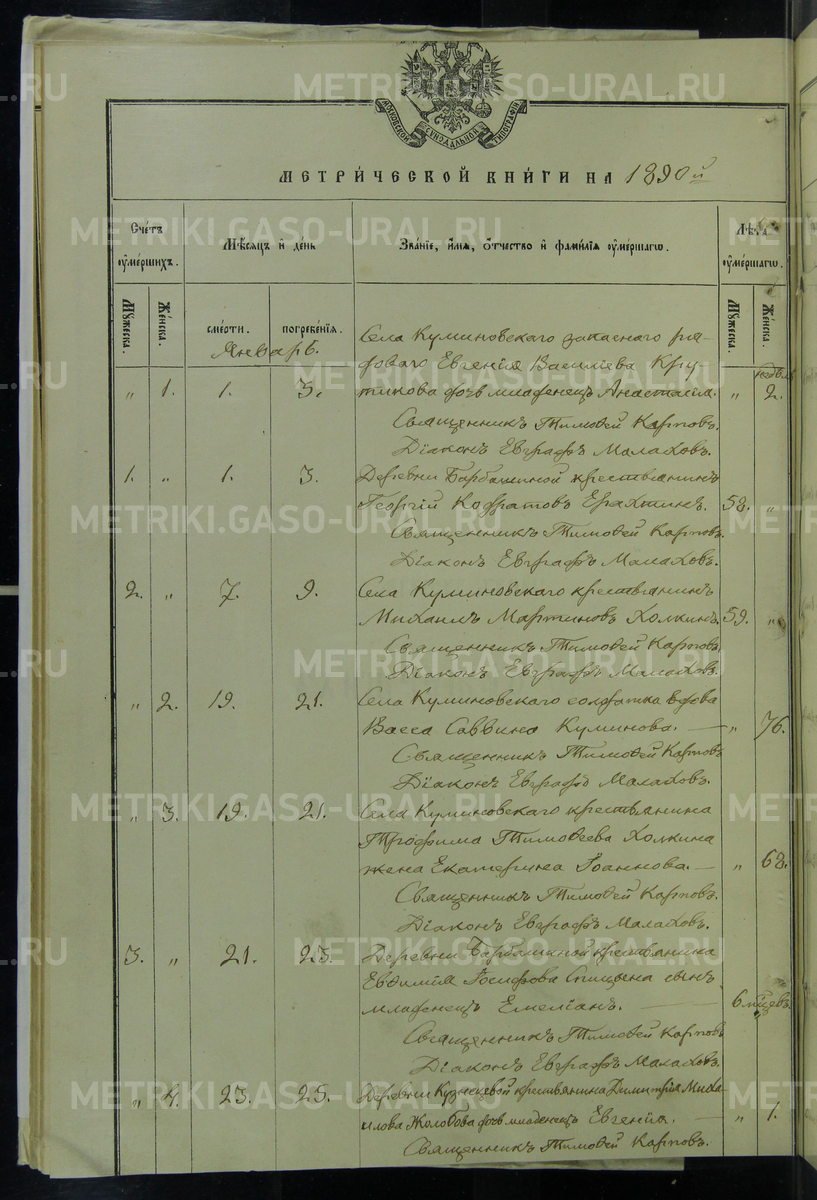 МОСКОВСКОЙ СѴНОДАЛЬНОЙ ТИПОГРАФІИ
МЕТРИ́ЧЕСКОЙ КНИ́ГИ НА 1890й
Сче́тъ ѹ҆ме́ршихъ.
Мѣ́сяцъ и҆ де́нь
Зва́нїе, и҆́мя, ѻ҆́тчество и҆ фами́лїя ѹ҆ме́ршагѡ.
Лѣ́та ѹ҆ме́ршагѡ.
Му́жеска.
Же́нска.
сме́рти.
погребе́нїя.
Му́жеска.
Же́нска.
Январь.
Села Куминовскаго запаснаго ря-
доваго Евгенія Василіева Кру-
недѣль
„ 1. 1. 3. тикова дочь младенецъ Анастасія. „ 2.
Священникъ Тимоѳей Карповъ.
Діаконъ Евграфъ Малаховъ.
1. „ 1. 3. Деревни Барбашиной крестьянинъ
Георгій Кодратовъ Ерахтинъ. 58. „
Священникъ Тимоѳей Карповъ.
Діаконъ Евграфъ Малаховъ.
2. „ 7. 9. Села Куминовскаго крестьянинъ
Михаилъ Мартиновъ Холкинъ. 59. „
Священникъ Тимоѳей Карповъ.
Діаконъ Евграфъ Малаховъ.
„ 2. 19. 21. Села Куминовскаго солдатка вдова
Васса Саввина Куминова. — „ 76.
Священникъ Тимоѳей Карповъ
Діаконъ Евграфъ Малаховъ.
„ 3. 19. 21. Села Куминовскаго крестьянина
Трофима Тимоѳеева Холкина
жена Екатерина Іоаннова. — „ 68.
Священникъ Тимоѳей Карповъ.
Діаконъ Евграфъ Малаховъ.
3. „ 21. 23. Деревни Барбашиной крестьянина
Евдимія Іосифова Спицына сынъ
младенецъ Емеліанъ. — 6 мцевъ. „
Священникъ Тимоѳей Карповъ
Діаконъ Евграфъ Малаховъ.
„ 4. 23. 25. Деревни крестьянина Димитрія Миха-
илова Жолобова дочь младенецъ Евгенія. — „ 1.
Священникъ Тимоѳей Карповъ.
METRIKI.GASO-URAL.RU